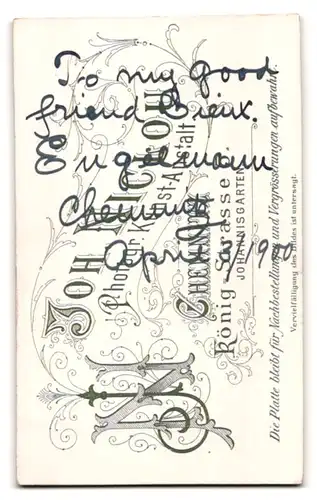 To my good
friend
Engelmann
Chemnitz
April 3/1900
JOH. NICOLOU
Photogr. Kunst-Anstalt
CHEMNITZ
König-Strasse
JOHANNISGARTEN
Die Platte bleibt für Nachbestellungen und Vergrösserungen aufbewahrt.
Vervielfältigung des Bildes ist untersagt.
JN